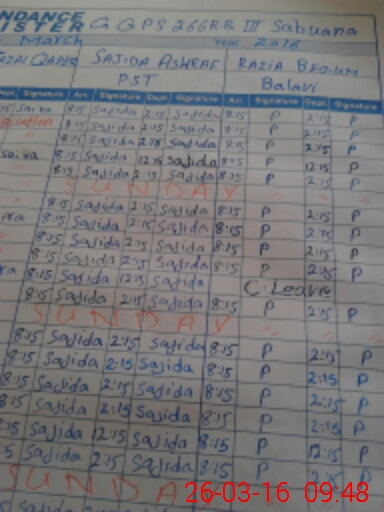 NDANCE
ISTER G GPS 266RB III Sabuana
March YEAR 2016
SAJIDA ASHRAF RAZIA BEGUM
PST Balavi
Signature Dept. Signature Arr. Signature Dept. Signature
Saira 8:15 Sajida 2:15 Sajida 8:15 P 2:15 P
8:15 Sajida 2:15 Sajida 8:15 P 2:15 P
8:15 Sajida 2:15 Sajida 8:15 P 2:15 P
Saira 8:15 Sajida 12:15 Sajida 8:15 P 12:15 P
8:15 Sajida 2:15 Sajida 8:15 P 2:15 P
SUNDAY
8:15 Sajida 2:15 Sajida 8:15 P 2:15 P
8:15 Sajida 2:15 Sajida 8:15 P 2:15 P
8:15 Sajida 2:15 Sajida 8:15 P 2:15 P
8:15 Sajida 2:15 Sajida 8:15 P 2:15 P
8:15 Sajida 12:15 Sajida C. Leave
8:15 Sajida 2:15 Sajida 8:15 P 2:15 P
SUNDAY
8:15 Sajida 2:15 Sajida 8:15 P 2:15 P
8:15 Sajida 2:15 Sajida 8:15 P 2:15 P
8:15 Sajida 2:15 Sajida 8:15 P 2:15 P
8:15 Sajida 2:15 Sajida 8:15 P 2:15 P
8:15 Sajida 12:15 Sajida 8:15 P 12:15 P
Sajida 2:15 Sajida 8:15 P 2:15 P
SUNDAY
26-03-16 09:48